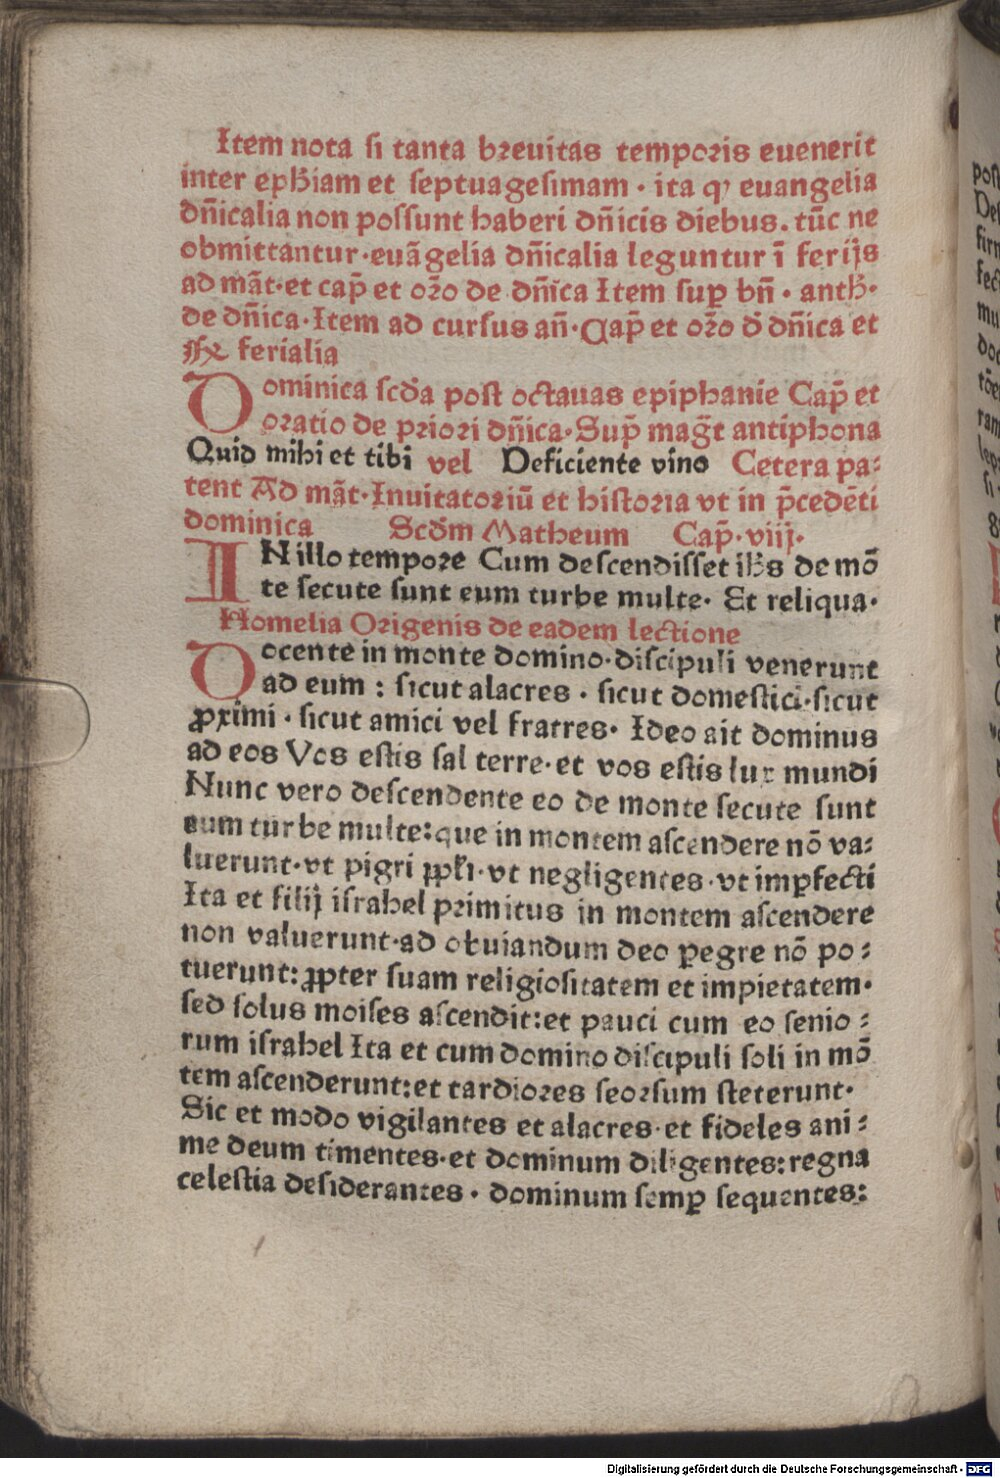 Item nota si tanta breuitas temporis euenerit
inter eph̄iam et septuagesimam · ita ꝙ euangelia
dn̄icalia non possunt haberi dn̄icis diebus. tūc ne
obmittantur · euāgelia dn̄icalia leguntur ī ferijs
ad māt · et cap̄ et or̄o de dn̄ica Item sup̄ bn̄ · anth̄ ·
de dn̄ica · Item ad cursus an̄ · Cap̄ et or̄o d̄ dn̄ica et
ferialia
Dominica scd̄a post octauas epiphanie Cap̄ et
oratio de priori dn̄ica · Sup̄ maḡt antiphona
Quid mihi et tibi vel Deficiente vino Cetera pa⸗
tent Ad māt · Inuitatoriū et historia vt in p̄cedēti
dominica Scd̄m Matheum Cap̄ · viij ·
IN illo tempore Cum descendisset ih̄s de mō
te secute sunt eum turbe multe · Et reliqua ·
Homelia Origenis de eadem lectione
Docente in monte domino · discipuli venerunt
ad eum : sicut alacres · sicut domestici · sicut
ꝓximi · sicut amici vel fratres · Ideo ait dominus
ad eos Vos estis sal terre · et vos estis lux mundi
Nunc vero descendente eo de monte secute sunt
eum turbe multe : que in montem ascendere nō va⸗
luerunt · vt pigri ppl̄i · vt negligentes · vt imꝑfecti
Ita et filij israhel primitus in montem ascendere
non valuerunt · ad obuiandum deo ꝑegre nō po⸗
tuerunt : ꝓpter suam religiositatem et impietatem ·
sed solus moises ascendit : et pauci cum eo senio⸗
rum israhel Ita et cum domino discipuli soli in mō
tem ascenderunt : et tardiores seorsum steterunt ·
Sic et modo vigilantes et alacres · et fideles ani⸗
me deum timentes · et dominum diligentes : regna
celestia desiderantes · dominum semꝑ sequentes :
Digitalisierung gefördert durch die Deutsche Forschungsgemeinschaft - DFG